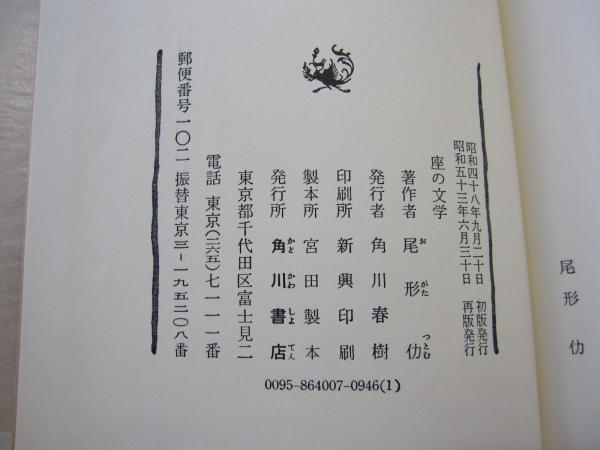 尾形仂
昭和四十八年九月二十日 初版発行
昭和五十三年六月三十日 再版発行
座の文学
著作者 尾形仂
おがたつとむ
発行者 角川春樹
印刷所 新興印刷
製本所 宮田製本
発行所 角川書店
かどかわしょてん
東京都千代田区富士見二
電話 東京(二六五)七一一一番
郵便番号一〇二 振替東京三-一九五二〇八番
0095-864007-0946(1)